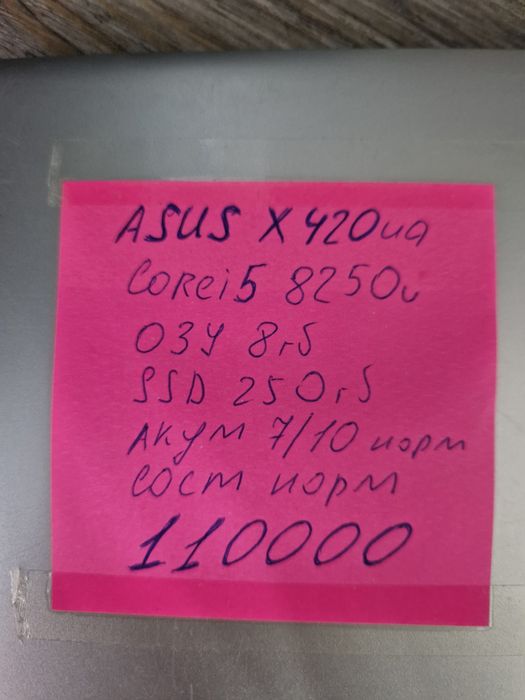 ASUS X420ua
Core i5 8250u
ОЗУ 8гб
SSD 250гб
Акум 7/10 норм
Сост норм
110000